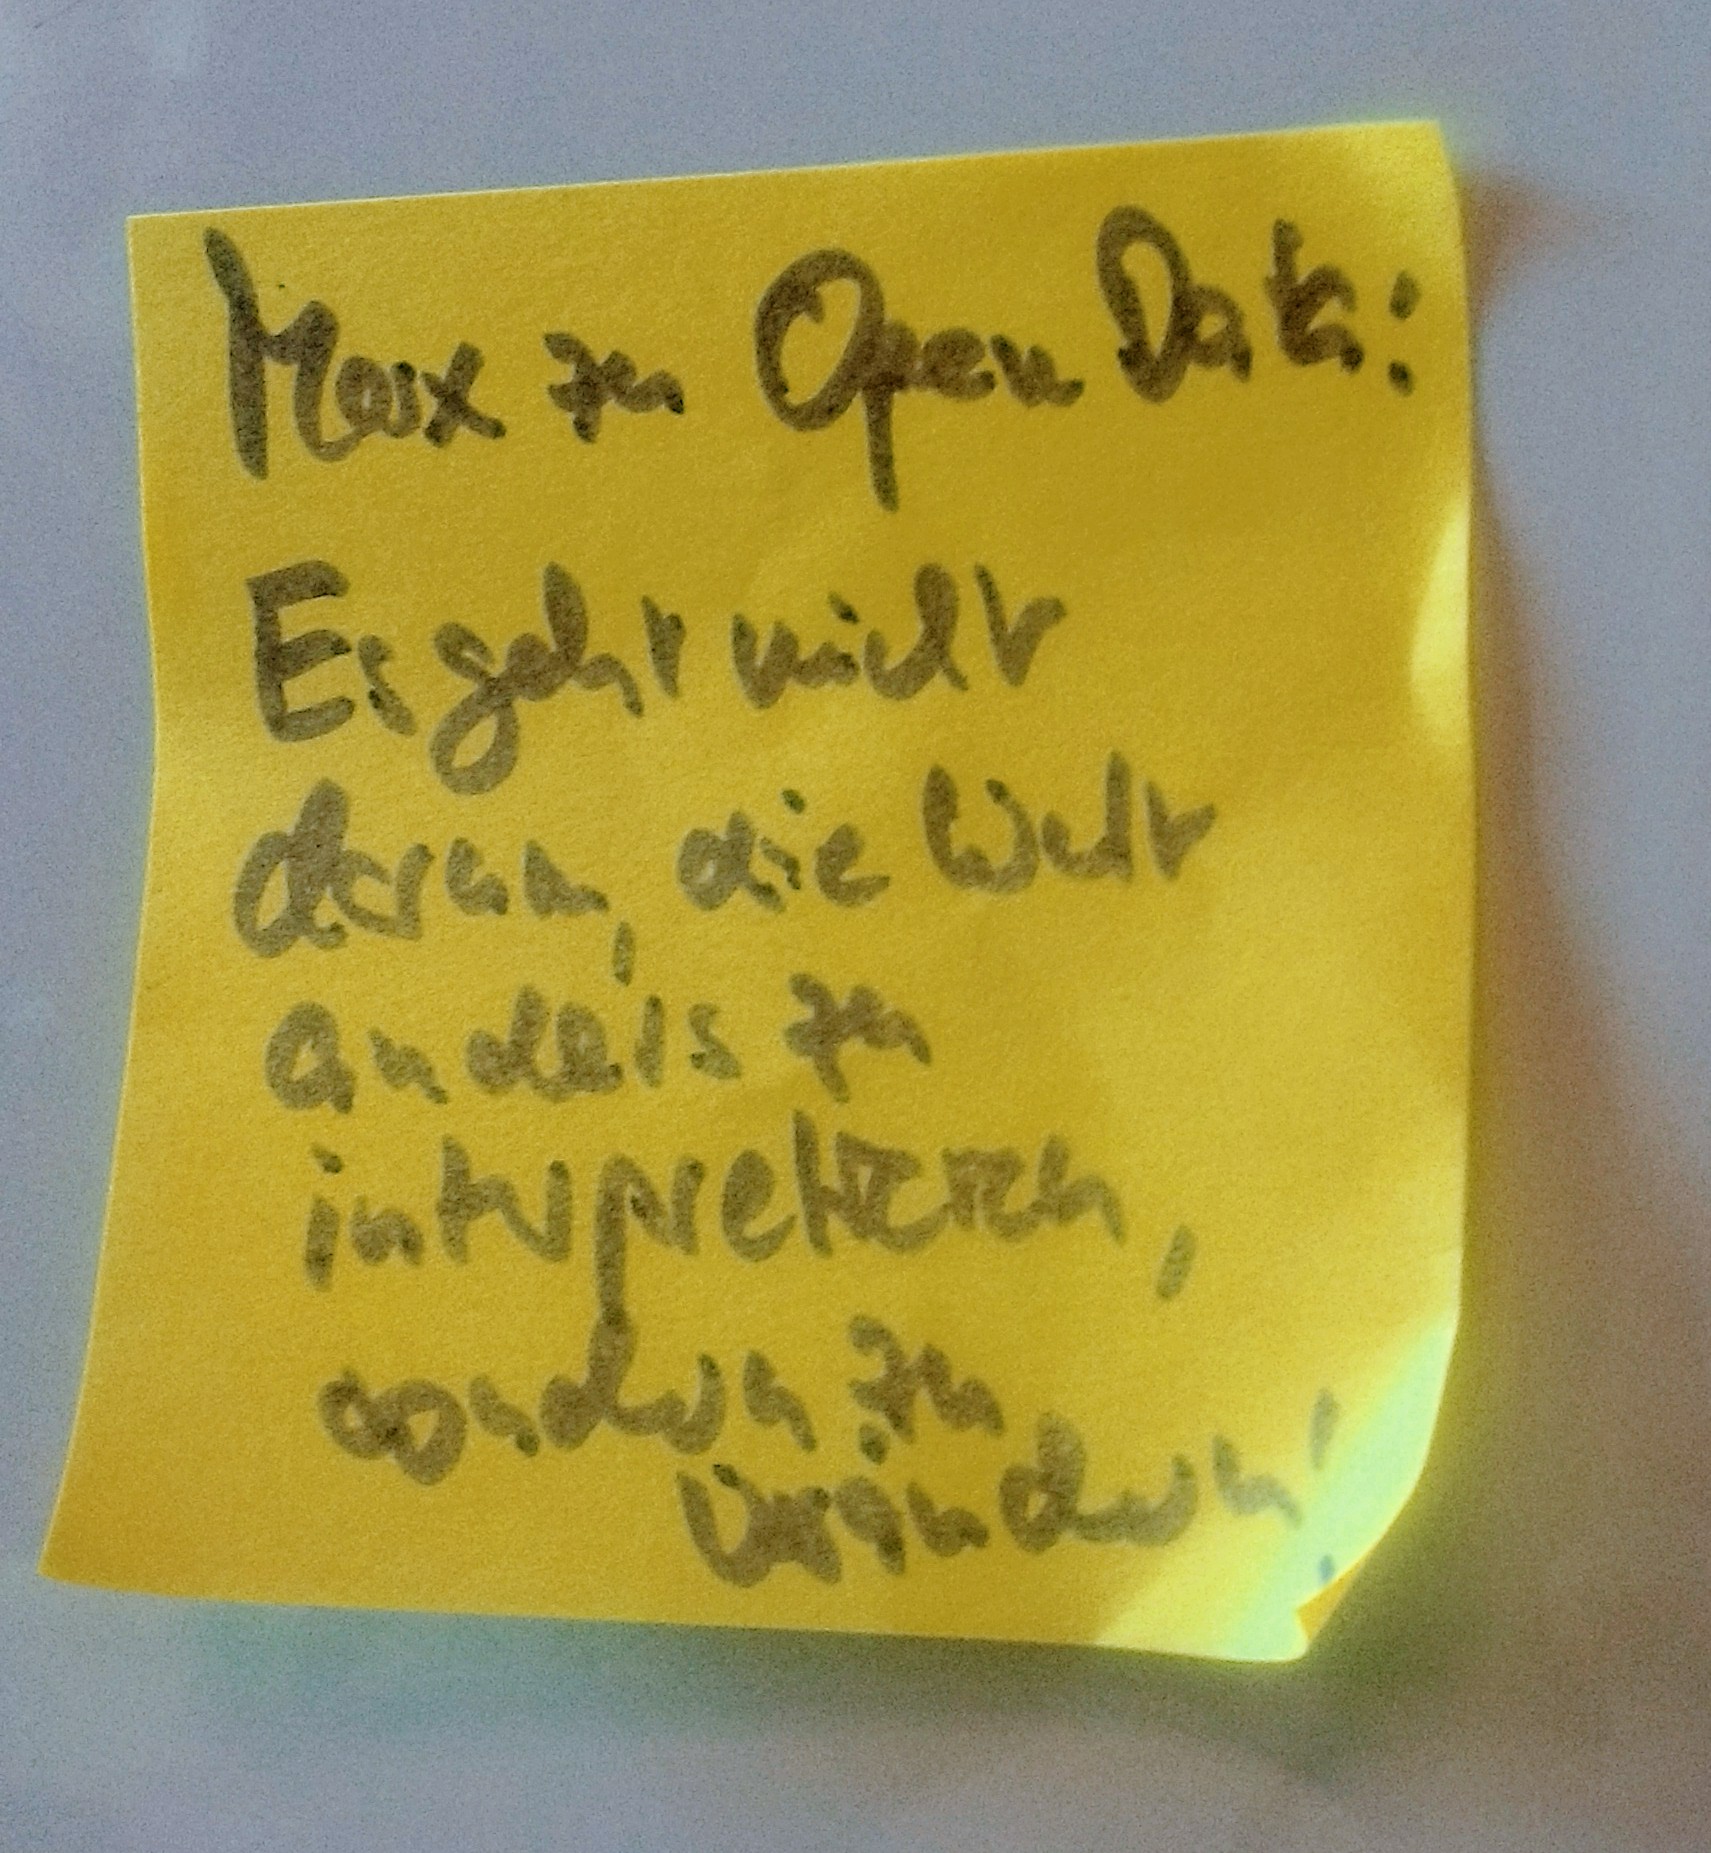 Marx zu Open Data:
Es geht nicht
darum, die Welt
anders zu
interpretieren,
sondern zu
verändern!